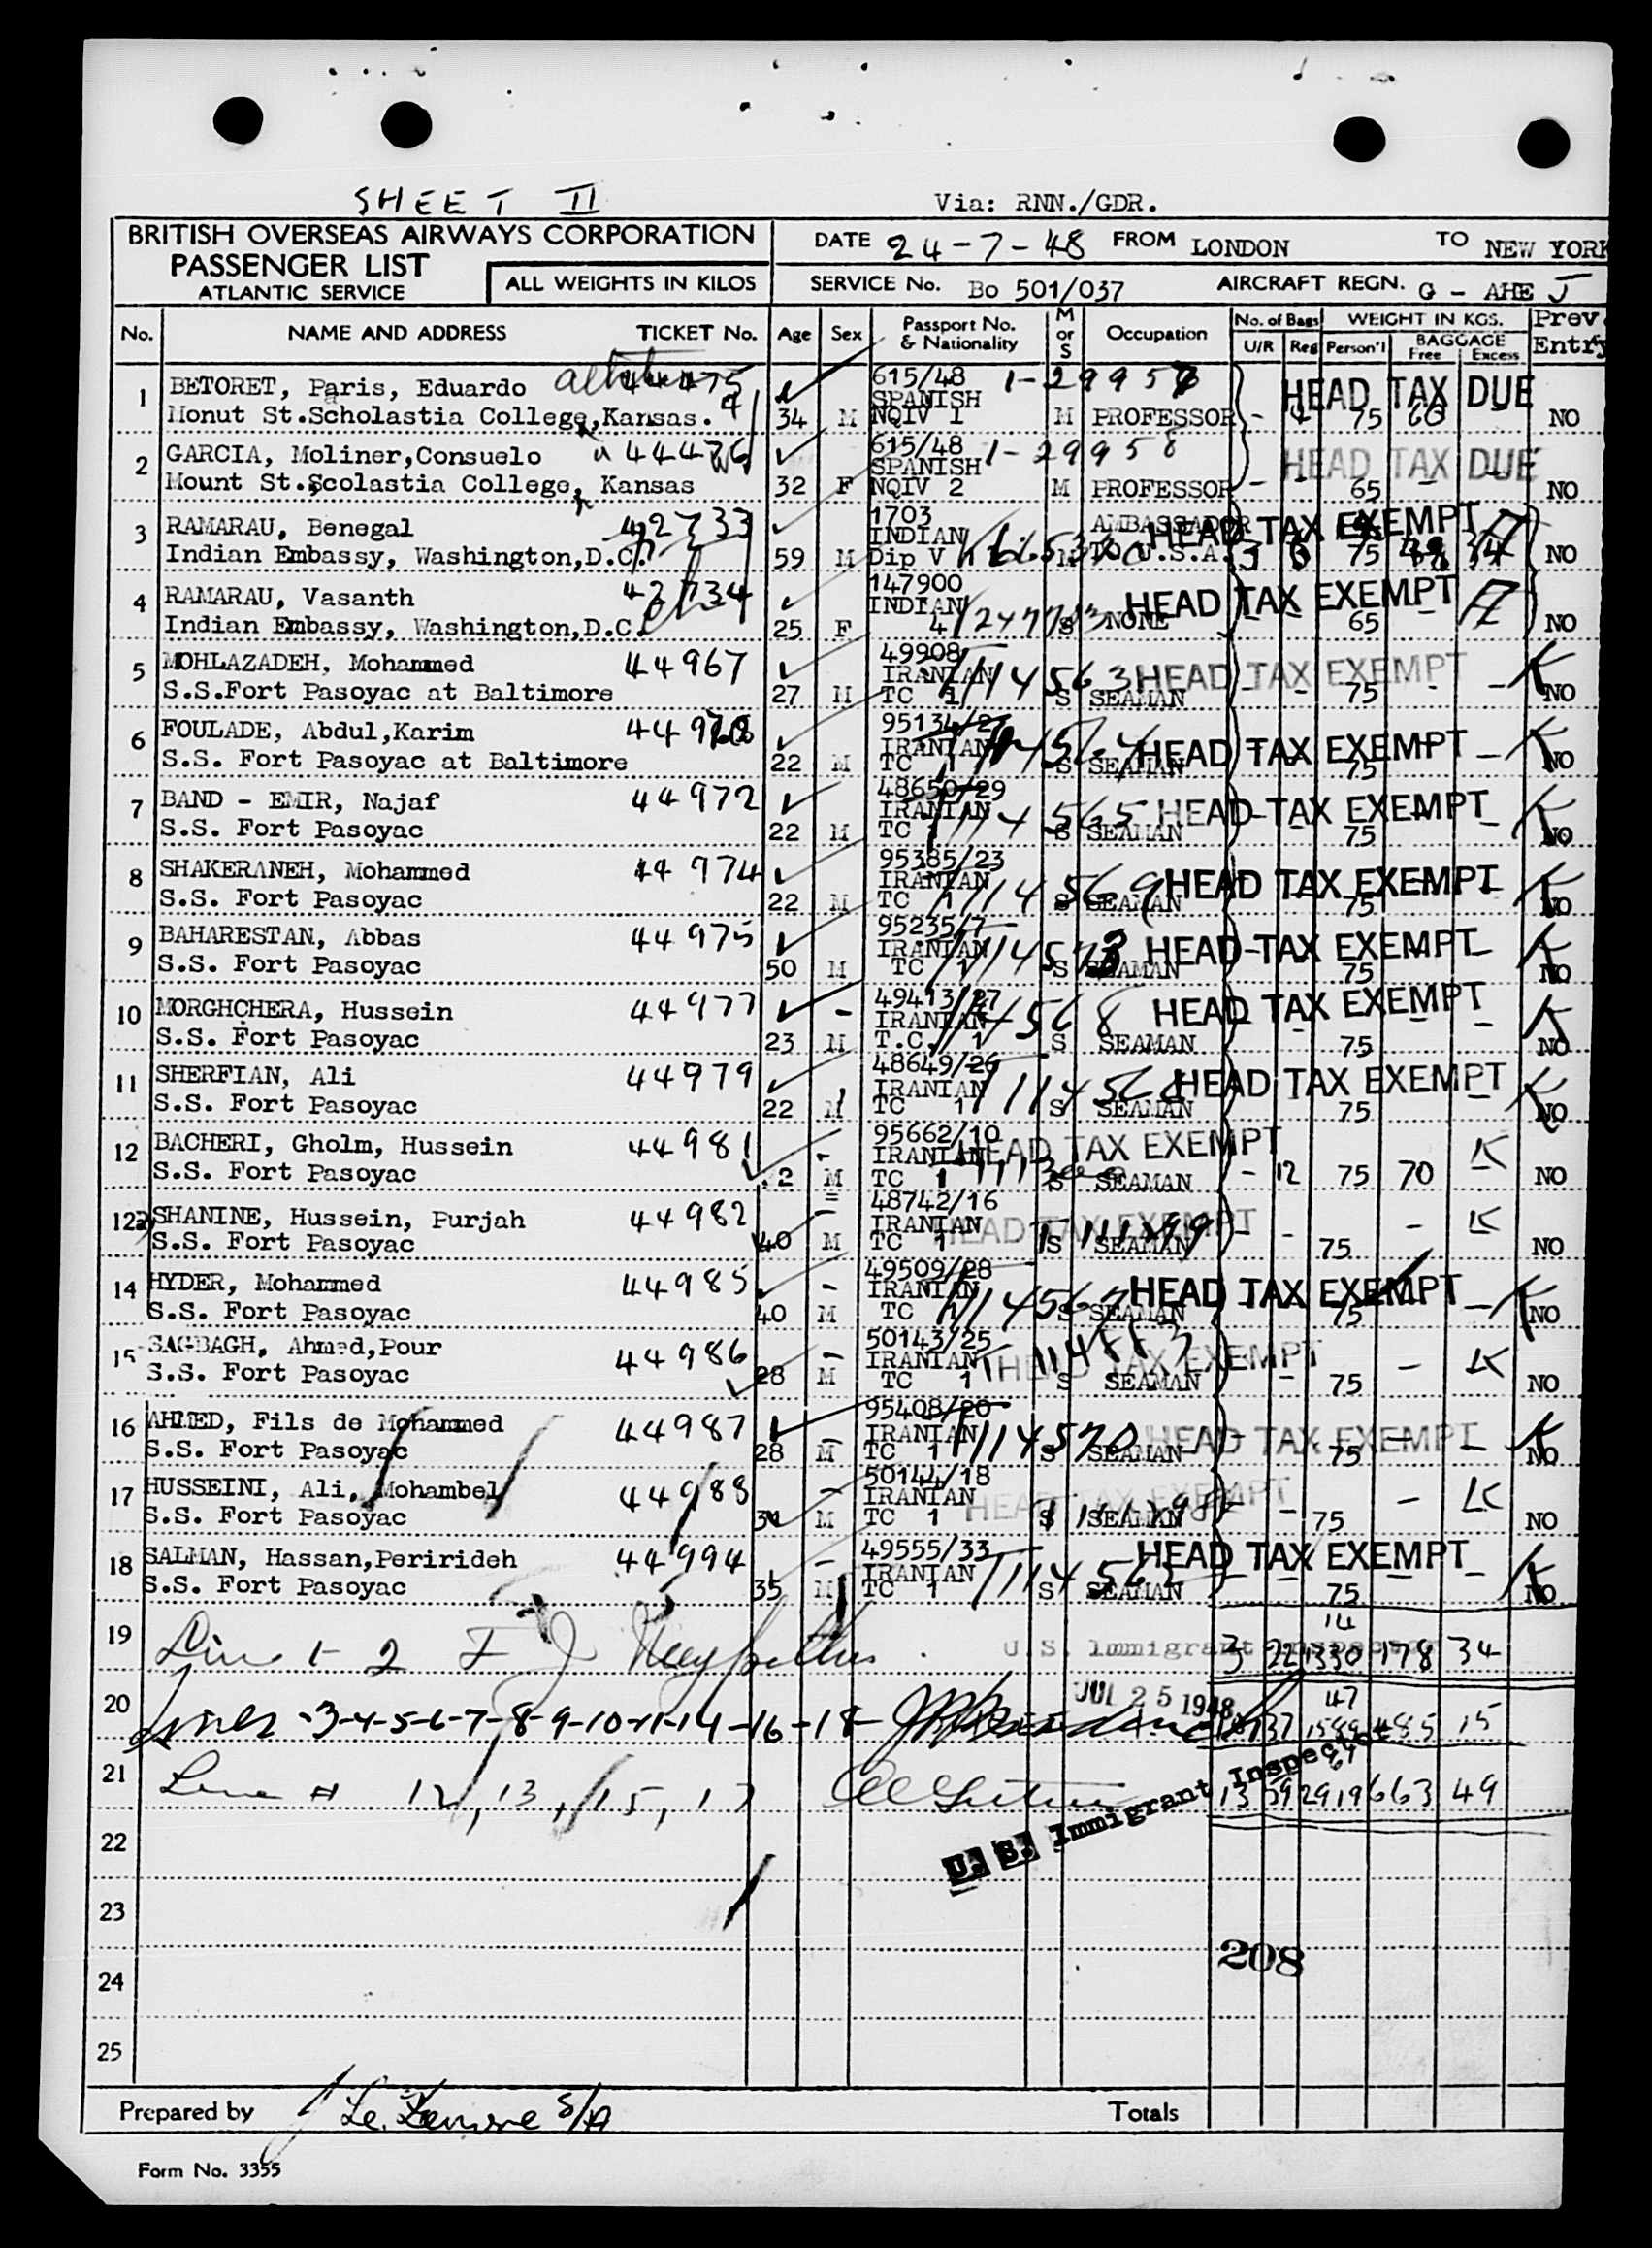 SHEET II
Via: RNN./GDR.
BRITISH OVERSEAS AIRWAYS CORPORATION
PASSENGER LIST
ATLANTIC SERVICE
ALL WEIGHTS IN KILOS
DATE 24-7-48 FROM LONDON TO NEW YORK
SERVICE No. Bo 501/037 AIRCRAFT REGN. G - AHE J
No. NAME AND ADDRESS TICKET No. Age Sex Passport No. & Nationality M or S Occupation No. of Bags U/R Reg WEIGHT IN KGS. Person'l BAGGAGE Free Excess Prev. Entry
1 BETORET, Paris, Eduardo 44475 615/48 HEAD TAX DUE
SPANISH
Monut St.Scholastia College, Kansas. 34 M NQIV 1 M PROFESSOR - 4 75 60 - NO
2 GARCIA, Moliner,Consuelo 44476 615/48 1-29958 HEAD TAX DUE
SPANISH
Mount St.Scolastia College, Kansas 32 F NQIV 2 M PROFESSOR - - 65 - - NO
3 RAMARAU, Benegal 42733 1703 AMBASSADOR HEAD TAX EXEMPT
INDIAN
Indian Embassy, Washington,D.C. 59 M Dip V M TO U.S.A. 3 75 34 NO
4 RAMARAU, Vasanth 42734 147900 HEAD TAX EXEMPT
INDIAN
Indian Embassy, Washington,D.C. 25 F 4 S NONE 65 NO
5 MOHLAZADEH, Mohammed 44967 49908 HEAD TAX EXEMPT
IRANIAN
S.S.Fort Pasoyac at Baltimore 27 M TC 1 1114563 S SEAMAN - - 75 - - NO
6 FOULADE, Abdul,Karim HEAD TAX EXEMPT
IRANIAN
S.S. Fort Pasoyac at Baltimore 22 M TC 1 S SEAMAN 75 NO
7 BAND - EMIR, Najaf 44972 48650/29 HEAD TAX EXEMPT
IRANIAN
S.S. Fort Pasoyac 22 M TC 1 1114565 S SEAMAN 75 NO
8 SHAKERANEH, Mohammed 44974 95385/23 HEAD TAX EXEMPT
IRANIAN
S.S. Fort Pasoyac 22 M TC 1 1114569 S SEAMAN 75 NO
9 BAHARESTAN, Abbas 44975 95235/7 HEAD TAX EXEMPT
IRANIAN
S.S. Fort Pasoyac 50 M TC 1 S SEAMAN 75 NO
10 MORGHCHERA, Hussein 44977 49413/27 HEAD TAX EXEMPT
IRANIAN
S.S. Fort Pasoyac 23 M T.C. 1 S SEAMAN 75 NO
11 SHERFIAN, Ali 44979 48649/26 HEAD TAX EXEMPT
IRANIAN
S.S. Fort Pasoyac 22 M TC 1 S SEAMAN 75 NO
12 BACHERI, Gholm, Hussein 44981 95662/10 HEAD TAX EXEMPT
IRANIAN
S.S. Fort Pasoyac M TC 1 S SEAMAN - 12 75 70 NO
SHANINE, Hussein, Purjah 44982 48742/16 HEAD TAX EXEMPT
IRANIAN
S.S. Fort Pasoyac 40 M TC 1 S SEAMAN - - 75 - NO
14 HYDER, Mohammed 44985 49509/28 HEAD TAX EXEMPT
IRANIAN
S.S. Fort Pasoyac 40 M TC 1 1114567 S SEAMAN 75 NO
15 SAGBAGH, Ahmed,Pour 44986 50143/25 HEAD TAX EXEMPT
IRANIAN
S.S. Fort Pasoyac 28 M TC 1 S SEAMAN - 75 - NO
16 AHMED, Fils de Mohammed 44987 95408/20 HEAD TAX EXEMPT
IRANIAN
S.S. Fort Pasoyac 28 M TC 1 1114570 S SEAMAN 75 NO
17 HUSSEINI, Ali, Mohambel 44988 50144/18 HEAD TAX EXEMPT
IRANIAN
S.S. Fort Pasoyac M TC 1 S SEAMAN - 75 - NO
18 SALMAN, Hassan,Perirideh 44994 49555/33 HEAD TAX EXEMPT
IRANIAN
S.S. Fort Pasoyac 35 M TC 1 S SEAMAN 75 NO
14
19 Line 1-2 U.S. Immigrant 3 22 1330 178 34
JUL 25 1948 47
20 Lines -3-4-5-6-7-8-9-10-11-14-16-18- 37 1589 485 15
61
21 Line # 12, 13, 15, 17 13 59 2919 663 49
U. S. Immigrant Inspector
22
23
208
24
25
Prepared by S/A Totals
Form No. 3355